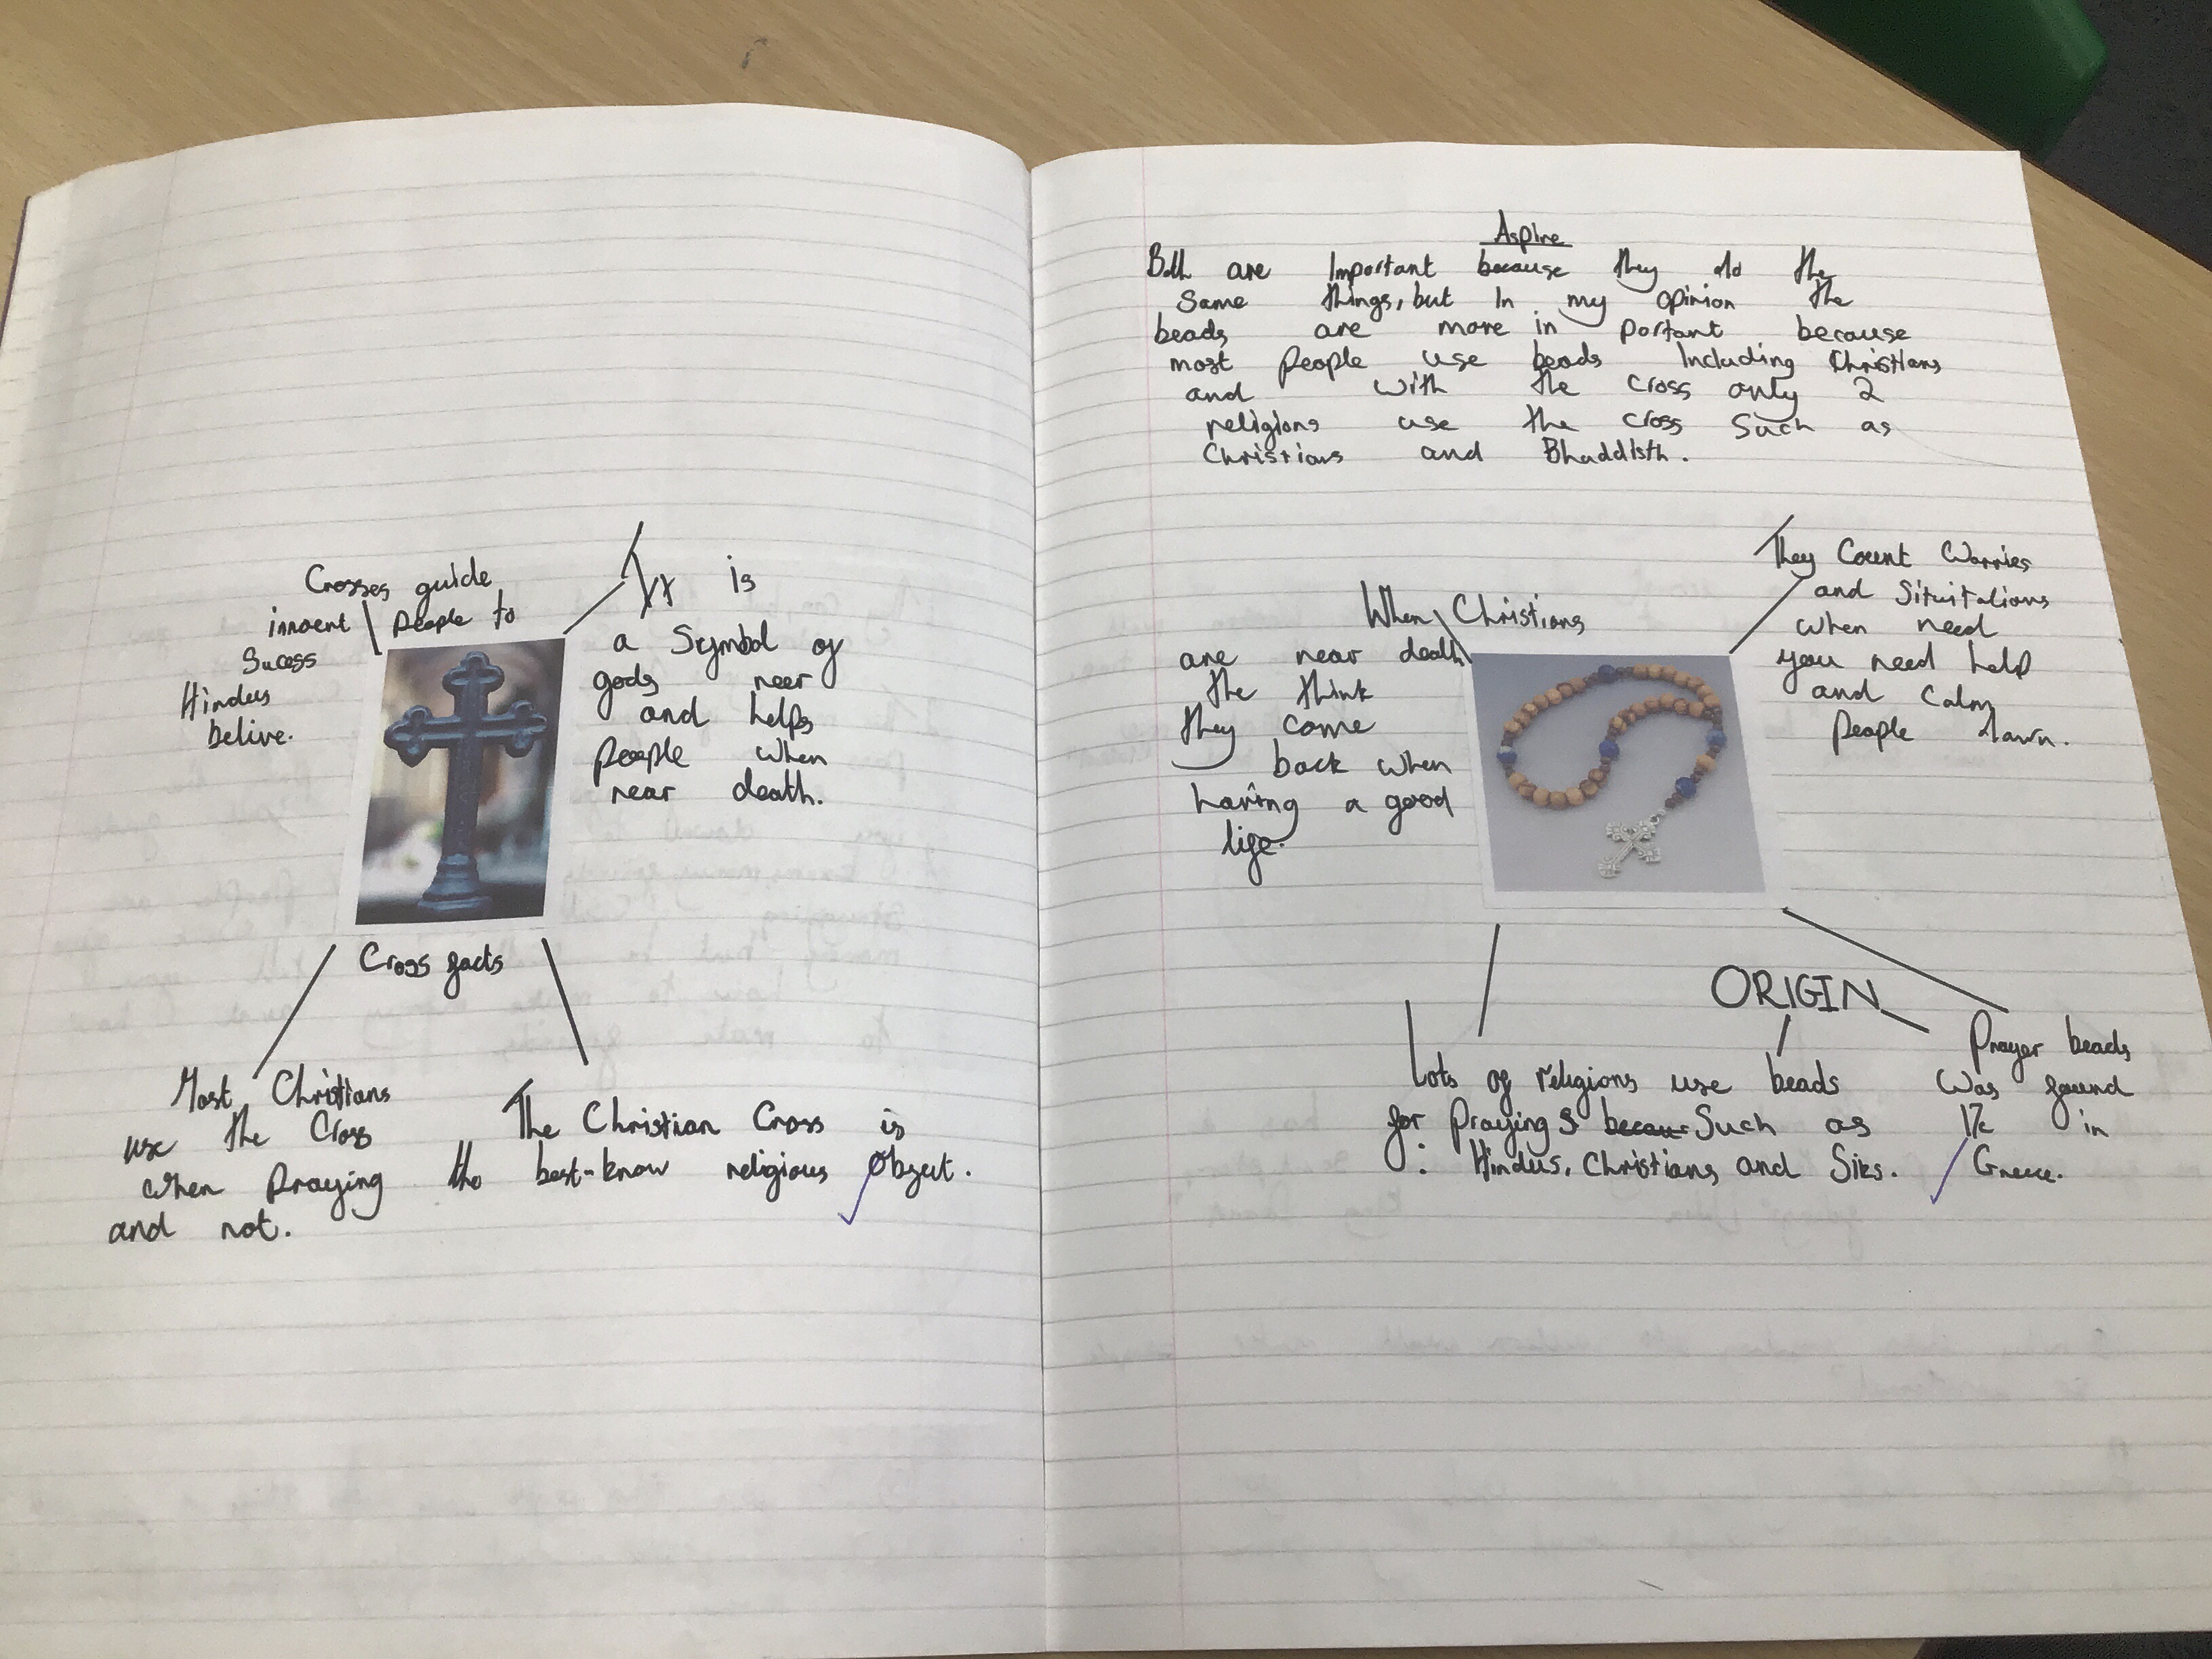 Crosses guide
innoent people to
Sucess
Hindus
belive.
It is
a Symbol of
gods neer
and helps
people when
near death.
Cross facts
Most Christians
use the Cross
when praying
and not.
The Christian Cross is
the best-know religious Object.
AspIre
Both are Important because they do the
Same things, but In my opinion the
beads are more in portant because
most people use beads Including Christians
and with the cross only 2
religions use the cross Such as
Christians and BhaddIsth.
When Christians
are near death
the think
they come
back when
having a good
life.
They Count Worries
and Situitations
when need
you need help
and Calm
people dawn.
ORIGIN
Lots of religions use beads
for praying & becaue Such as
: Hindus, Christians and Siks.
Prayer beads
Was found
in
Greece.